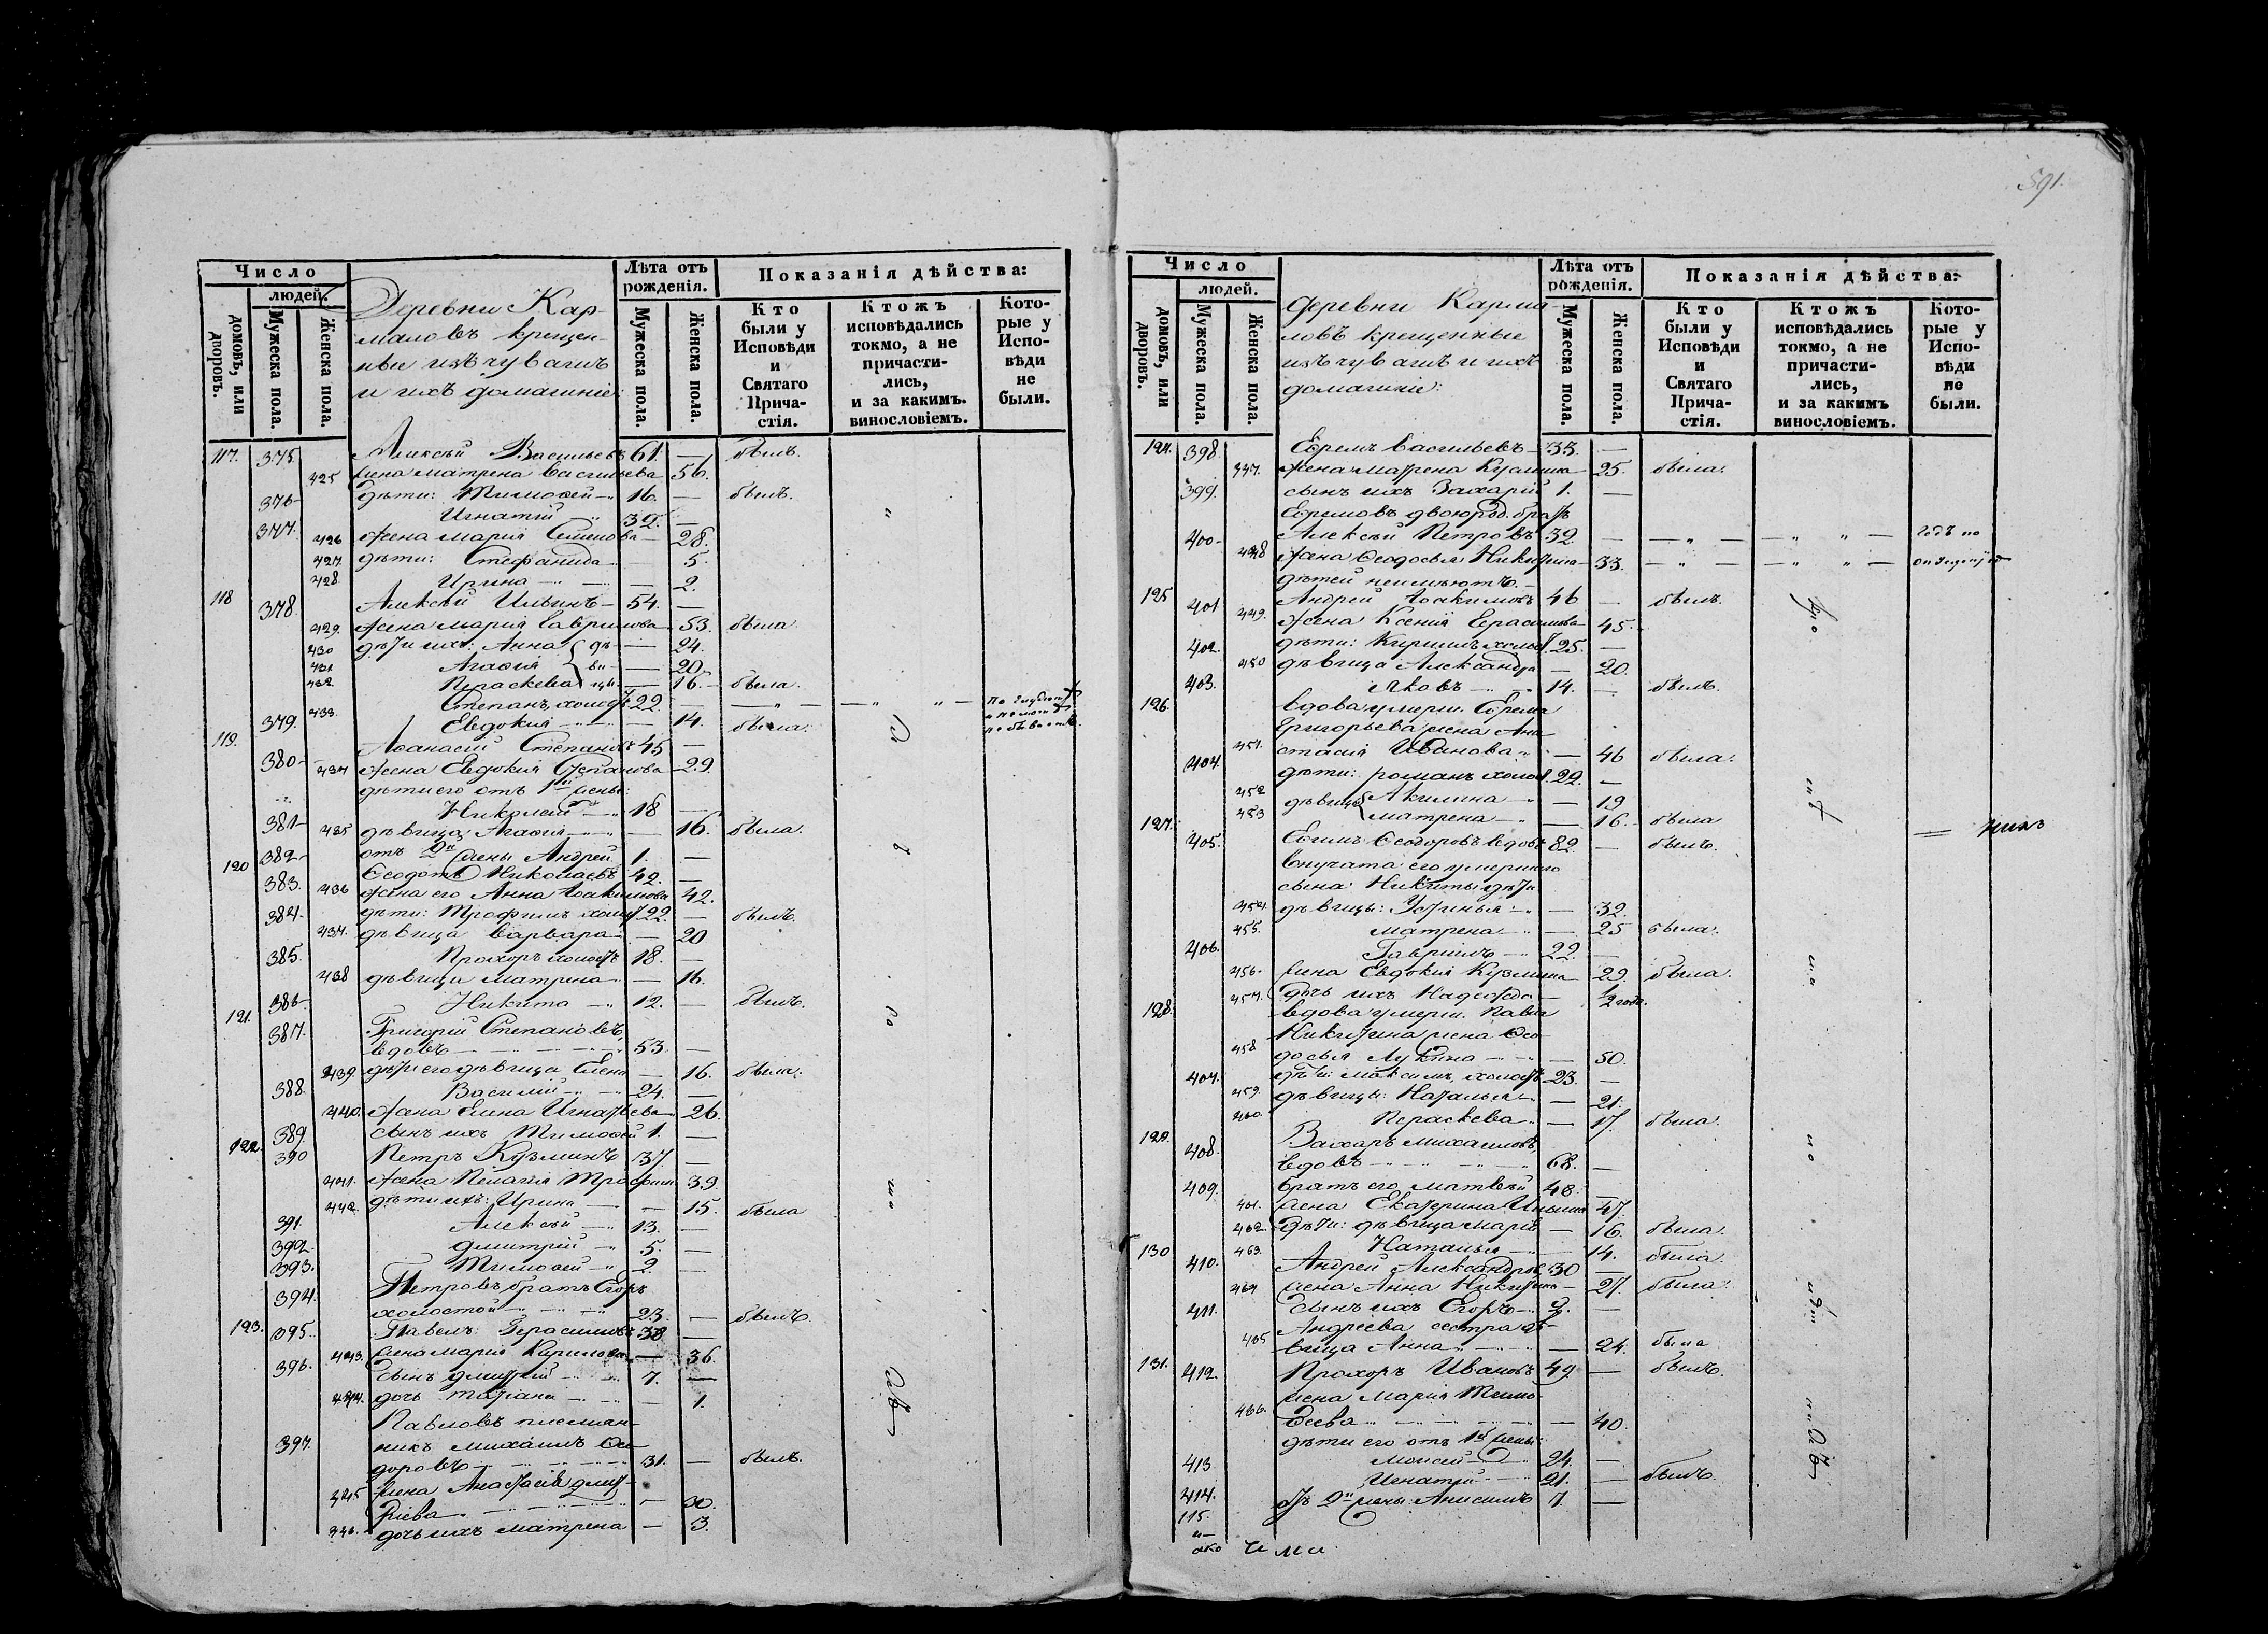 591.
Число
людей.
домовъ, или дворовъ.
Мужеска пола.
Женска пола.
Деревни Кар-
маловъ крещен-
ные изъ чувашъ
и ихъ домашніе:
Лѣта отъ рожденія.
Мужеска пола.
Женска пола.
Показанія дѣйства:
Кто были у Исповѣди и Святаго Прича-стія.
Ктожъ исповѣдались токмо, а не причасти-лись, и за какимъ. винословіемъ.
Кото-рые у Испо-вѣди не были.
117. 375. Алексѣй Васильевъ 61. — былъ.
425 жена Матрена Васильева 56.
376 дѣти: Тимофей 16. — былъ.
377. Игнатій 32. —
426 жена Марія Семенова — 28.
427. дѣти: Стефанида 5.
428. Ирина — 2.
118 378. Алексѣй Ильинъ 54. —
429. жена Марія Гаврилова 53. была
430 дѣти ихъ: Анна дѣ- — 24.
431 Агафія ви- — 20.
432. Параскева цы. — 16. была.
379. Степанъ холостъ 22. — — „ — — „ „ —
433. Евдокія — 14. была.
119. 380 Афанасій Степановъ 45 —
434 жена Евдокія Степанова 29.
дѣти его отъ 1й жены:
381 Николай 18 —
435 дѣвица Агафія — 16. была.
382 отъ 2й жены Андрей 1. —
120 383. Федотъ Николаевъ 42. —
436 жена его Анна Іоакимова 42.
384. дѣти: Трофимъ холост 22. — былъ.
437. дѣвица Варвара — 20
385. Прохоръ холостъ 18. —
438 дѣвица Матрена — 16.
386 Никита 12. — былъ.
121. 387. Григорій Степановъ,
вдовъ 53. —
439. дѣти его дѣвица Елена — 16. была.
388. Василій 24. —
440. жена Елена Игнатьева 26.
389. сынъ ихъ Тимофей 1. —
122. 390 Петръ Кузминъ 37. —
441. жена Пелагія Трофим 39.
442. дѣти ихъ: Ирина — 15. была
391. Алексѣй 13. —
392. Дмитрій 5. —
393. Тимофей 2. —
394. Петровъ братъ Егоръ
холостой 23. — былъ.
123. 395. Павелъ Герасимовъ 38 —
443. жена Марія Кирилова — 36.
396. сынъ Дмитрій 7. —
444. дочь Татіана — 1.
Павловъ племян-
397. никъ Михаилъ Фе-
доровъ 31. — былъ.
445 жена Анастасія Дмит-
ріева — 30.
446. дочь ихъ Матрена — 3.
Число
людей.
домовъ, или дворовъ.
Мужеска пола.
Женска пола.
Деревни Карма-
ловъ крещенные
изъ чувашъ и ихъ
домашніе:
Лѣта отъ рожденія.
Мужеска пола.
Женска пола.
Показанія дѣйства:
Кто были у Исповѣди и Святаго Прича-стія.
Ктожъ исповѣдались токмо, а не причасти-лись, и за какимъ винословіемъ.
Кото-рые у Испо-вѣди не были.
124. 398. Ефремъ Васильевъ 35. —
447. жена Матрена Кузмина 25. была.
399. сынъ ихъ Захарій 1. —
Ефремовъ двоюрод. братъ
400 Алексѣй Петровъ 32. — — „ — — „ „ — годъ по
448 жена Феодосья Никитина 33. — „ — — „ „ —
дѣтей неимѣютъ.
125 401 Андрей Іоакимовъ 46 — былъ.
449. жена Ксенія Герасимова 45.
402. дѣти: Кирилъ холост. 25. —
450 дѣвица Александра — 20.
403. Яковъ 14. — былъ.
126. вдова умерш. Ефрема
Григорьева жена Ана-
451. стасія Иванова — 46 была.
404. дѣти: Романъ холос. 22. —
452 дѣвицы Акилина — 19
453 Матрена — 16. была
127. 405. Ефимъ Феодоровъ вдовъ 82. — былъ.
внучата его умершаго
сына Никиты дѣти
454. дѣвицы: Устинья — 32.
455. Матрена — 25 была.
406. Гавріилъ 22. —
456. жена Евдокія Кузмина 22. была.
457. дочь ихъ Надежда — 1/2 года.
128. вдова умерш. Павла
Никитина жена Фео-
458 досья Лукина — 50.
407. дѣти: Максимъ, холостъ 23. —
459. дѣвицы: Наталья — 21.
460. Параскева — 17. была.
129. 408. Захаръ Михаиловъ,
вдовъ 68. —
409. братъ его Матвѣй 48. —
461. жена Екатерина Ильина 47.
462. дѣти: дѣвица Марія — 16. была.
463. Наталья — 14. была.
130 410. Андрей Александров 30 —
464 жена Анна Никитина 27. была.
411. сынъ ихъ Егоръ 2. —
Андреева сестра дѣ-
465 вица Анна — 24. была
131. 412. Прохоръ Ивановъ 49 — былъ.
жена Марія Тимо-
466. феева — 40.
дѣти его отъ 1й жены:
413 Моисей 24. —
414. Игнатій 21. — былъ.
115. отъ 2й жены: Анисимъ 7. —